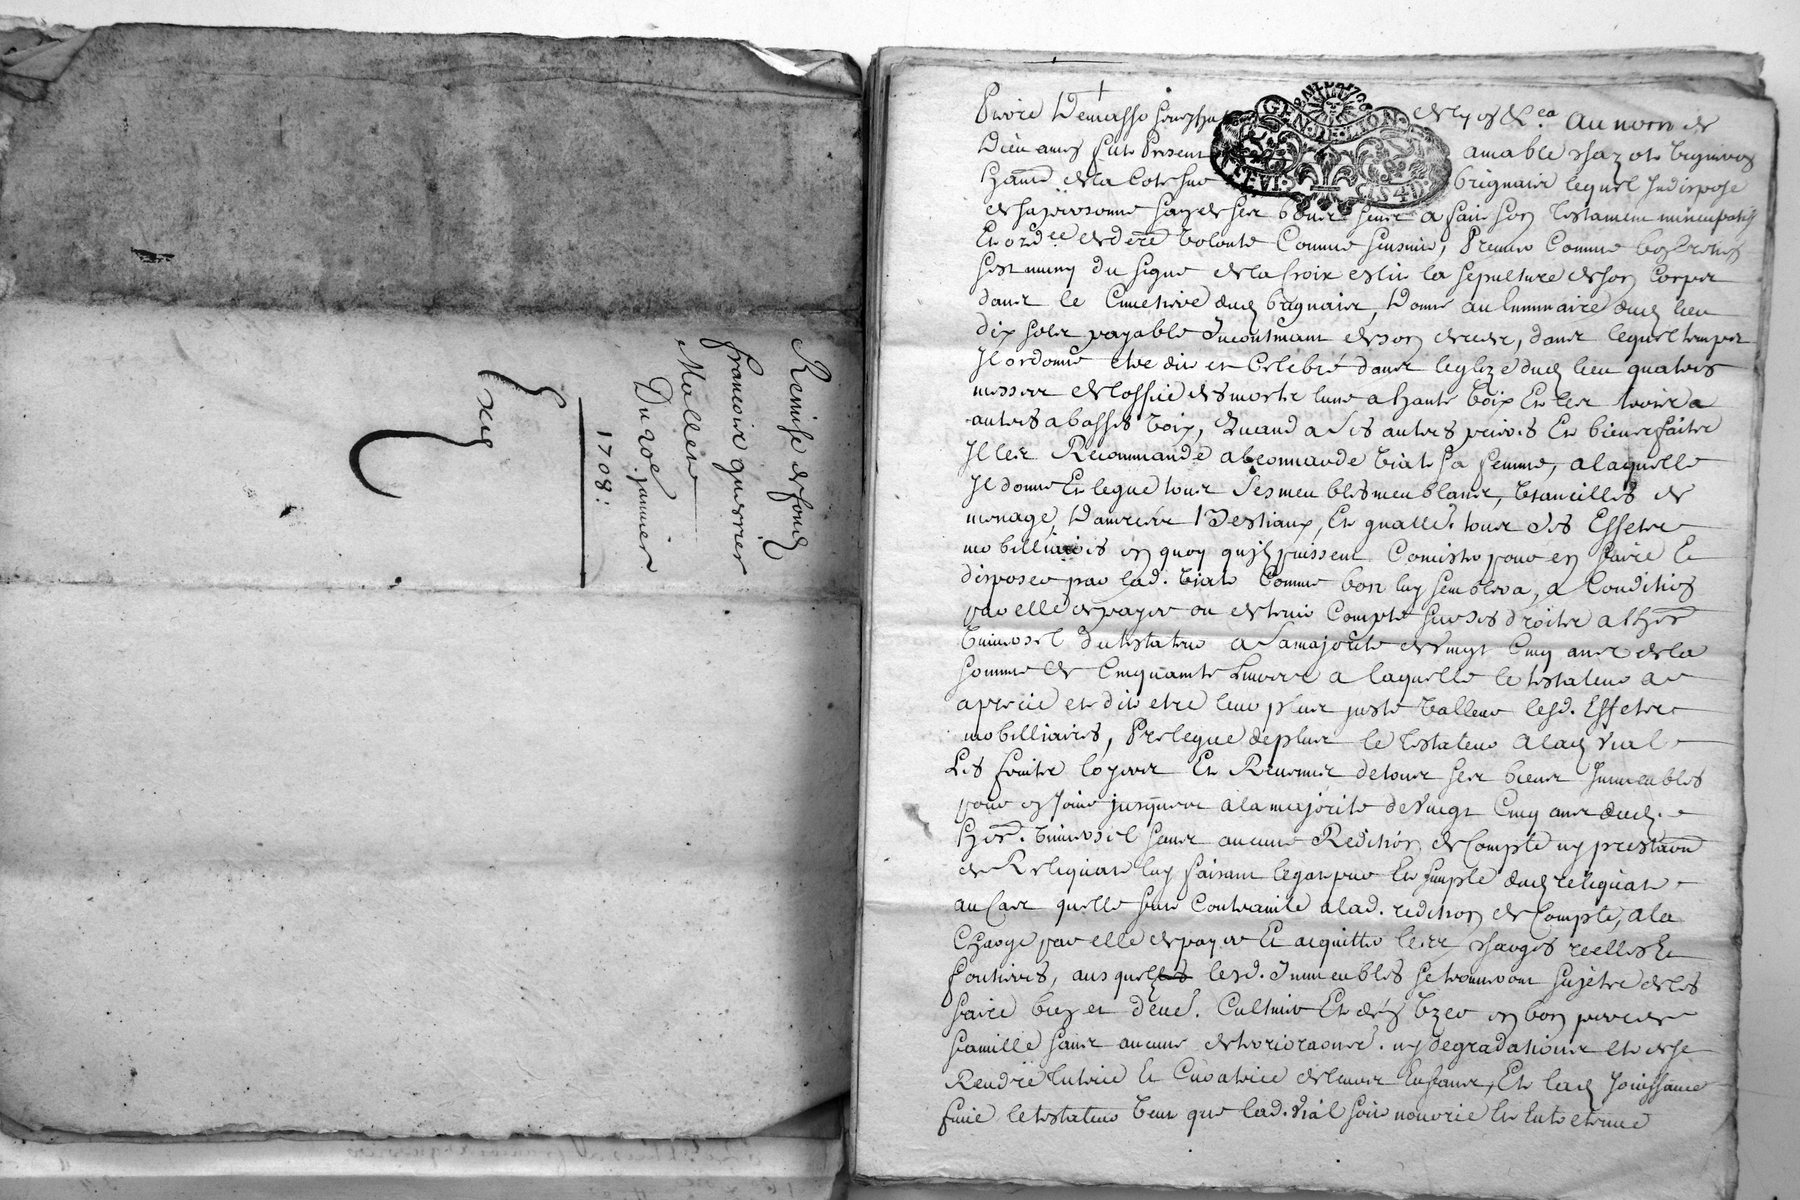 Remise de fond
francois guerrier
Mallere
Du 20e janvier
1708.
Exed
GEN. DE LION
Au nom de
Dieu amen fut Present amable Chazot vigneron
hānt de la Coste sur brignaix lequel Indispose
de sa personne sain de ses bons sens a fait son testament nuncupatif
Et ordce. de dere volonte Comme sensuit, Premier Comme bon cretien
sest muny du signe de la croix eslit la sepulture de son corps
dans le Cimetiere dud brignaix, donne au luminaire dud lieu
dix solz payable Incontinant de son deces, dans lequel temps
Il ordonne etre dit et Celebré dans leglize dud lieu quatres
messes de loffice des morts lune a haute voix Et les trois
autres a basses voix, Quand a Ses autres prieres Et bienfaits
Il les Recommande a leonnarde Vial Sa femme, a laquelle
Il donne Et legue tous Ses meubles meublants, Ustancilles de
menage, Danrées Bestiaux, Et gnallé. tous Ses Effets
mobilliaires en quoy quils puissent Consister pour en faire Et
disposer par lad. Vial Comme bon luy semblera, a Condition
par elle de payer ou de tenir Compte sur ses droits a lher
Universel du testateur a Sa majorite de Vingt Cinq ans de la
somme de Cinquante Livres a laquelle le testateur a
aprecié et dit etre leur plus juste valleur lesd. Effets
mobilliaires, Prelegue de plus le testateur a lad Vial
Les fruits loyers Et Revenus de tous ses biens Immeubles
pour en Jouir jusques a la majorite de Vingt Cinq ans dud.
her. Universel sans aucune Redition de Compte ny prestaon
de Reliquat luy faisant legat pur Et simple dud reliquat
au Cas quelle fut Contrainte a lad. redition de Compte, a la
Charge par elle de payer Et acquitter les Charges reelles Et
fontieres, ausquels lesd. Immeubles se trouveront sujets de les
faire bien et deue. Cultiver Et den Uzer en bon pere de
famille sans aucune deterioraonss. ny degradations et de se
Rendre tutrice Et Curatrice de leurs Enfants, Et lad Jouissance
finie le testateur veut que lad. Vial soit nourrie Et Entretenue